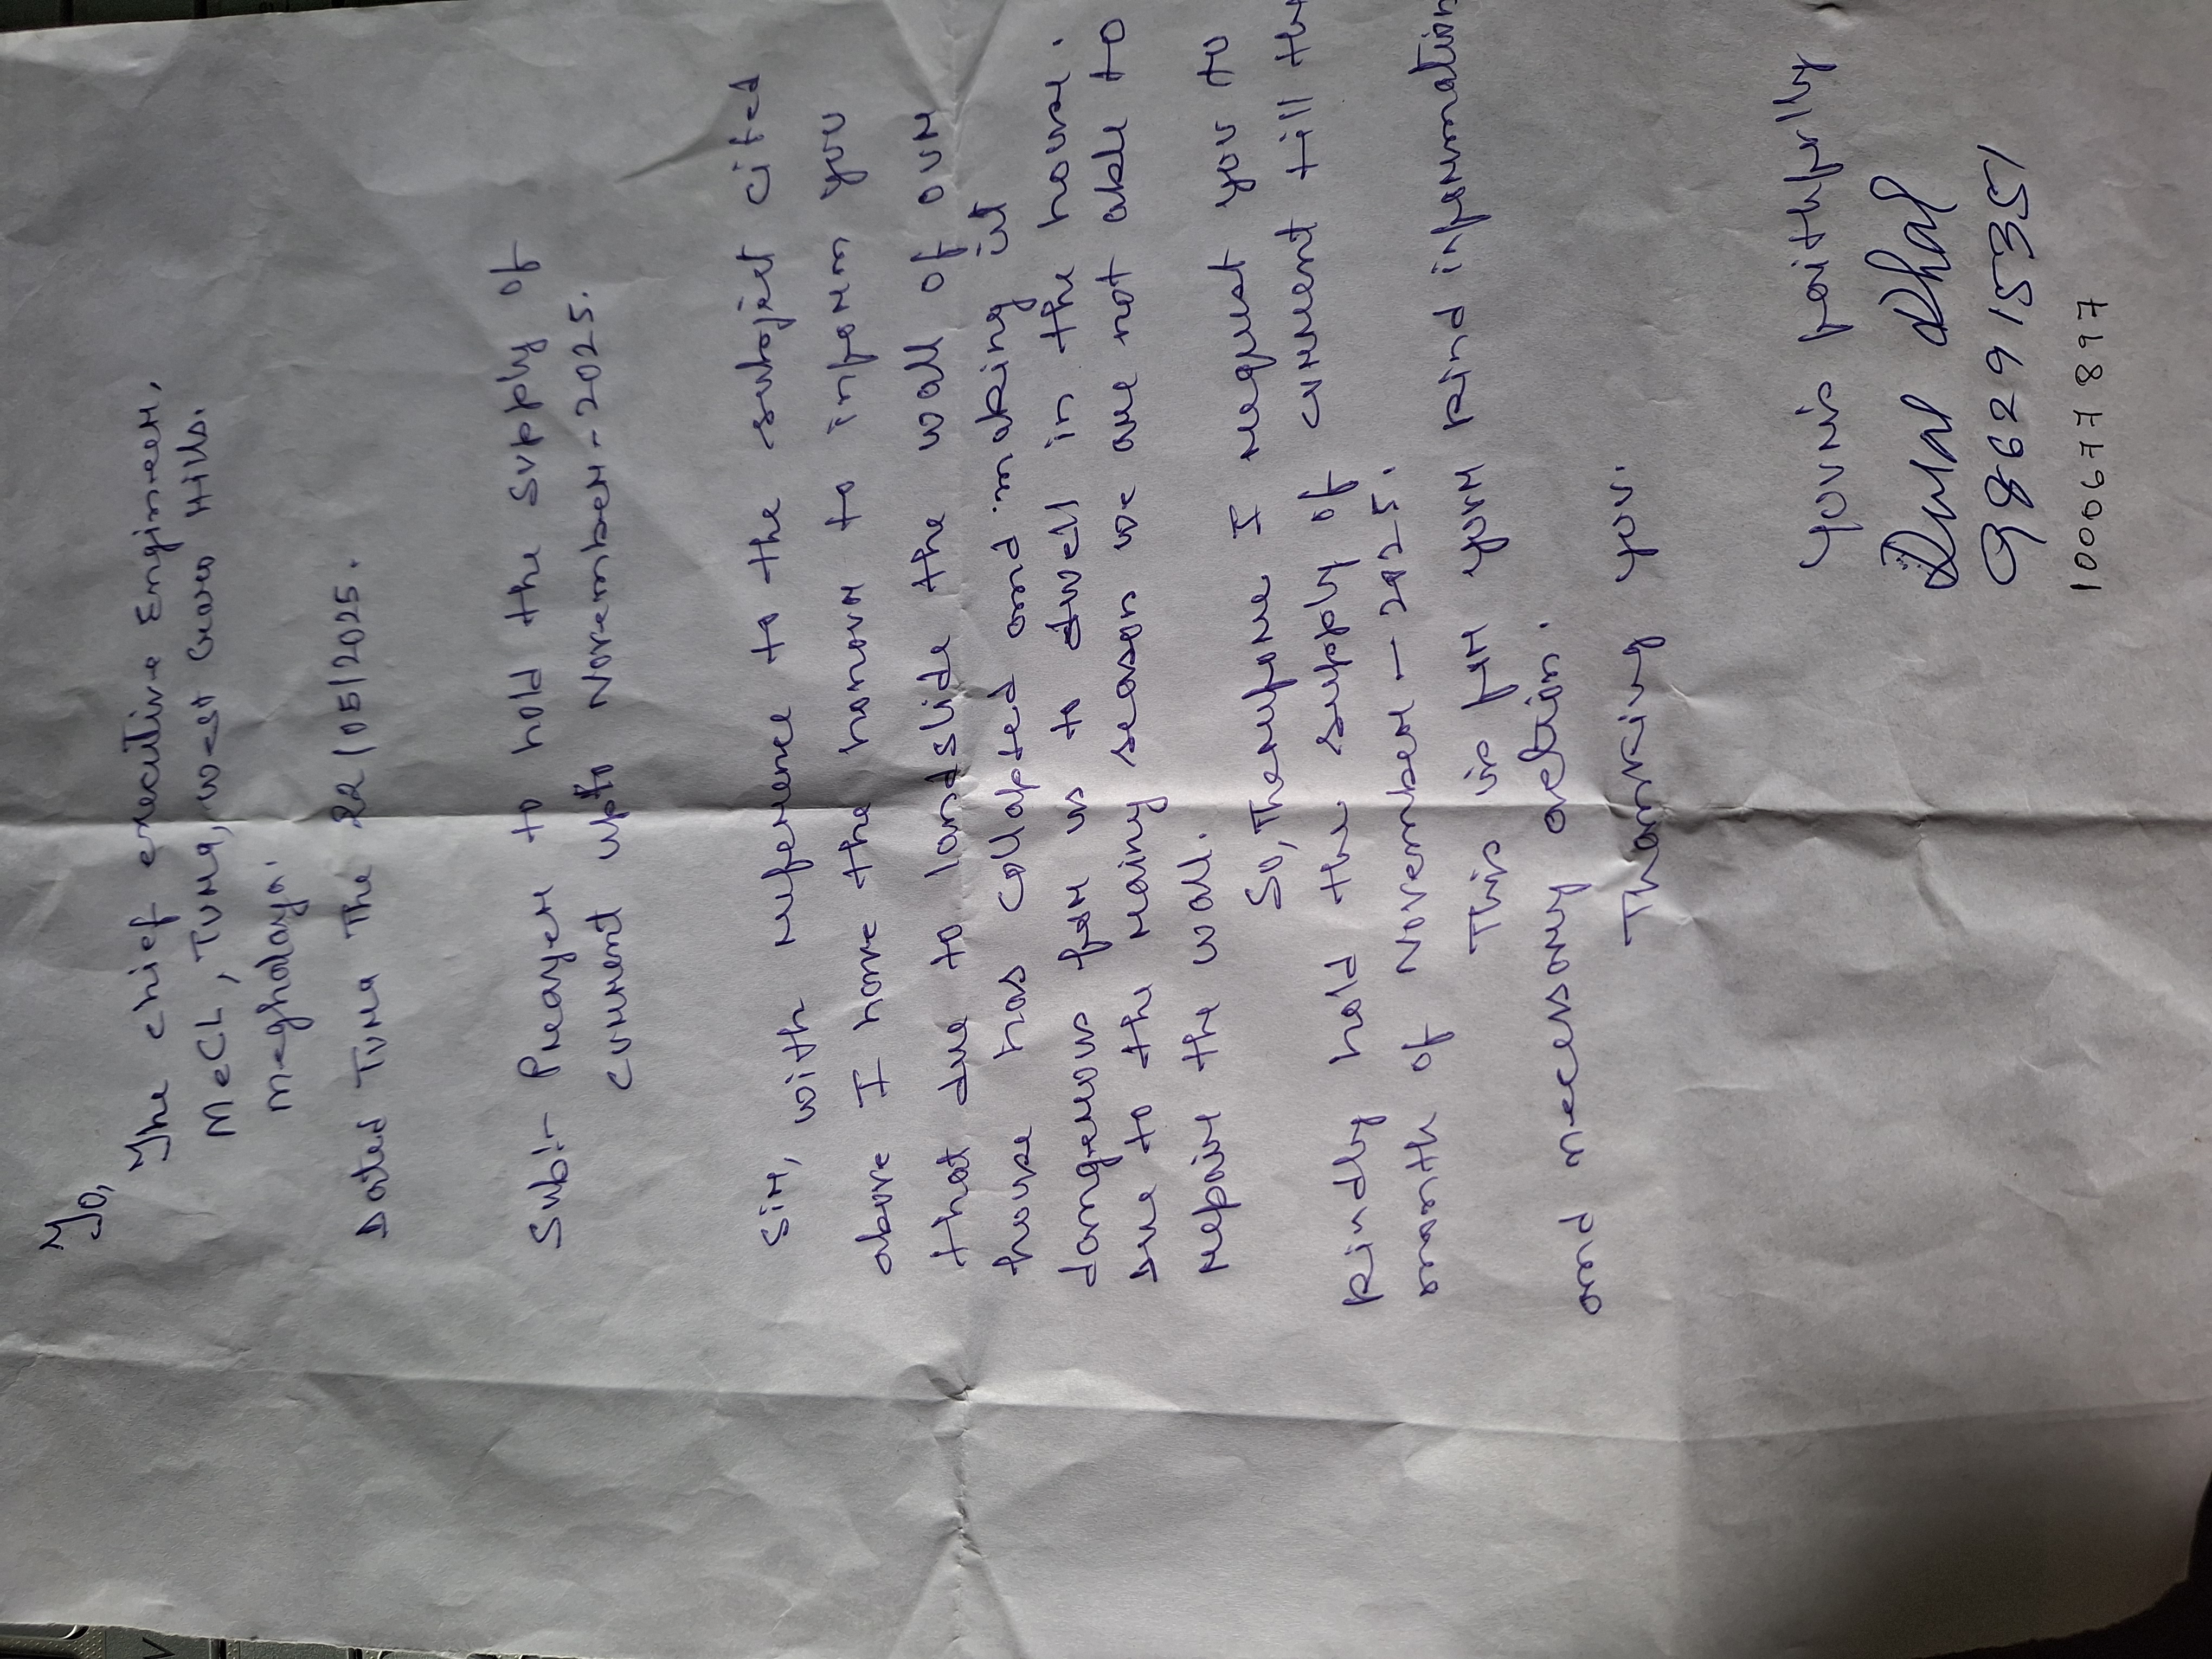 To,
The chief executive Engineer,
MeCL, Tura, west Garo Hills.
meghalaya.
Dated Tura The 22/05/2025.
Sub:- Prayer to hold the supply of
current upto November-2025.
Sir, with reference to the subject cited
above I have the honour to inform you
that due to landslide the wall of our
house has collapted and making it
dangerous for us to dwell in the house.
Due to the rainy season we are not able to
repair the wall.
So, Therefore I request you to
kindly hold the supply of current till the
month of November - 2025.
This is for your kind information
and necessary action.
Thanking you.
Yours faithfully
Dhal
9862915351
1000677897